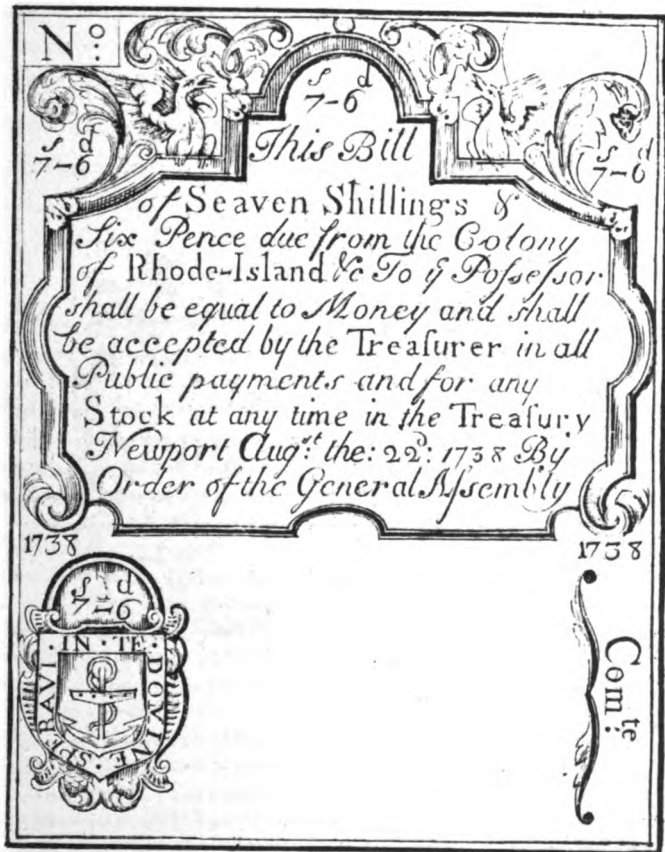 No:
s d
7-6
s d
7-6
s d
7-6
This Bill
of Seaven Shillings &
Six Pence due from the Colony
of Rhode-Island &c To yͤ Poſseſsor
shall be equal to Money and shall
be accepted by the Treaſurer in all
Public payments and for any
Stock at any time in the Treaſury
Newport Augˢᵗ: the: 22ᵈ: 1738 By
Order of the General Aſsembly
1738
1738
s d
7-6
SPERAVI · IN · TE · DOMINE
Comᵗᵉ: